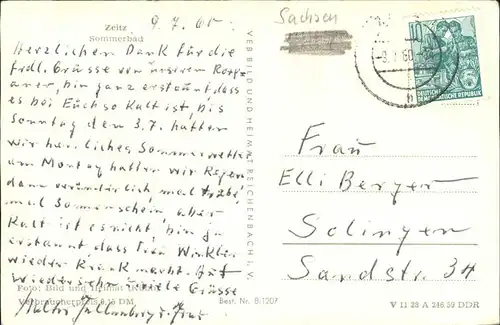 Zeitz
Sommerbad
9.7.60.
Herzlichen Dank für die
frdl. Grüsse von unseren
bin ganz erstaunt dass
es bei Euch so kalt ist, bis
Sonntag den 3.7. hatten
wir herrliches Sommerwetter
am Montag hatten wir Regen
dann veränderlich mal trübe
mal Sonnenschein, aber
Kalt ist es nicht, bin ja
erstaunt dass Frau Winkler
wieder Krank macht. Auf
Wiedersehn viele Grüsse
Foto: Bild und Heimat
Verbraucherpreis 0,16 DM
Walter u. Frau
VEB BILD UND HEIMAT REICHENBACH I. V.
Best. Nr. B 1207
Sachsen
10
DEUTSCHE
DEMOKRATISCHE REPUBLIK
Frau
Elli Berger
Solingen
Sandstr. 34
V 11 28 A 246/59 DDR